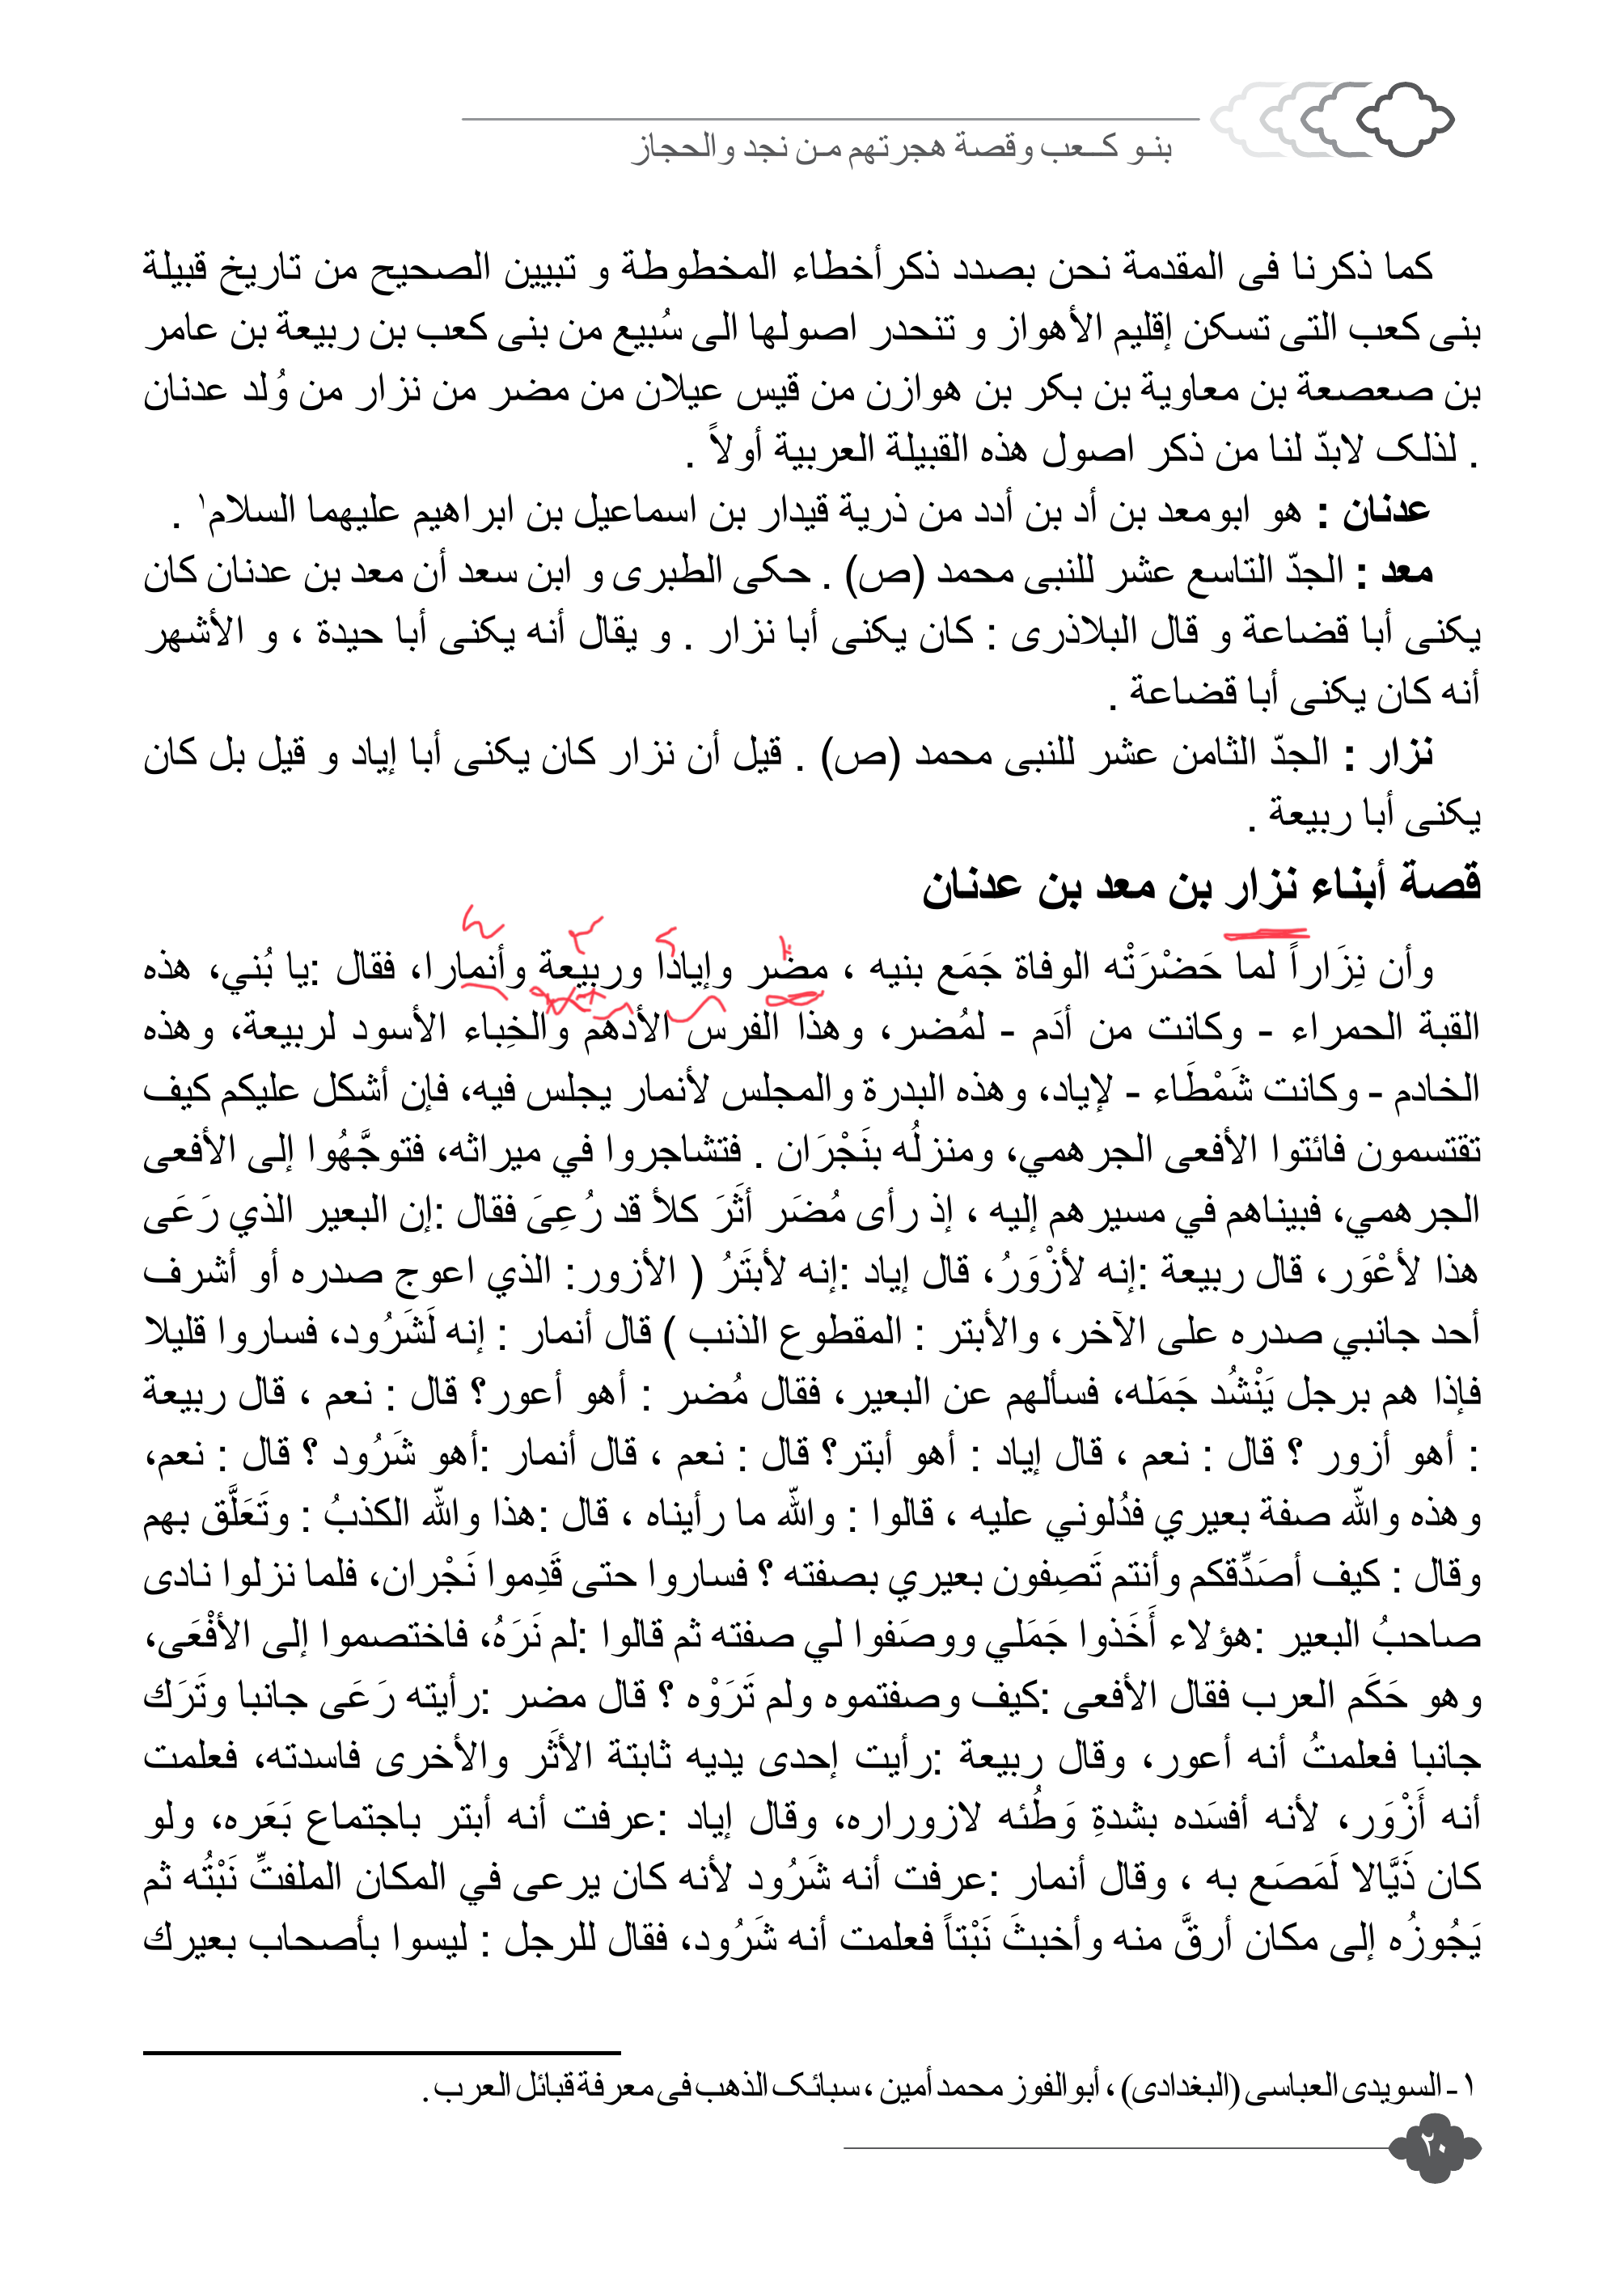 بنو كعب وقصة هجرتهم من نجد والحجاز
كما ذكرنا فى المقدمة نحن بصدد ذكرأخطاء المخطوطة و تبيين الصحيح من تاريخ قبيلة
بنى كعب التى تسكن إقليم الأهواز و تنحدر اصولها الى سُبيع من بنى كعب بن ربيعة بن عامر
بن صعصعة بن معاوية بن بكر بن هوازن من قيس عيلان من مضر من نزار من وُلد عدنان
. لذلک لابدّ لنا من ذكر اصول هذه القبيلة العربية أولاً .
عدنان : هو ابومعد بن أد بن أدد من ذرية قيدار بن اسماعيل بن ابراهيم عليهما السلام١ .
معد : الجدّ التاسع عشر للنبى محمد (ص) . حكى الطبرى و ابن سعد أن معد بن عدنان كان
يكنى أبا قضاعة و قال البلاذرى : كان يكنى أبا نزار . و يقال أنه يكنى أبا حيدة ، و الأشهر
أنه كان يكنى أبا قضاعة .
نزار : الجدّ الثامن عشر للنبى محمد (ص) . قيل أن نزار كان يكنى أبا إياد و قيل بل كان
يكنى أبا ربيعة .
قصة أبناء نزار بن معد بن عدنان
وأن نِزَاراً لما حَضْرَتْه الوفاة جَمَع بنيه ، مضر وإيادا وربيعة وأنمارا، فقال :يا بُني، هذه
القبة الحمراء - وكانت من أدَم - لمُضر، وهذا الفرس الأدهم والخِباء الأسود لربيعة، وهذه
الخادم - وكانت شَمْطَاء - لإياد، وهذه البدرة والمجلس لأنمار يجلس فيه، فإن أشكل عليكم كيف
تقتسمون فائتوا الأفعى الجرهمي، ومنزلُه بنَجْرَان . فتشاجروا في ميراثه، فتوجَّهُوا إلى الأفعى
الجرهمي، فبيناهم في مسيرهم إليه ، إذ رأى مُضَر أثَرَ كلأ قد رُعِىَ فقال :إن البعير الذي رَعَى
هذا لأعْوَر، قال ربيعة :إنه لأزْوَرُ، قال إياد :إنه لأبتَرُ ( الأزور: الذي اعوج صدره أو أشرف
أحد جانبي صدره على الآخر، والأبتر : المقطوع الذنب ) قال أنمار : إنه لَشَرُود، فساروا قليلا
فإذا هم برجل يَنْشُد جَمَله، فسألهم عن البعير، فقال مُضر : أهو أعور؟ قال : نعم ، قال ربيعة
: أهو أزور ؟ قال : نعم ، قال إياد : أهو أبتر؟ قال : نعم ، قال أنمار :أهو شَرُود ؟ قال : نعم،
وهذه والله صفة بعيري فدُلوني عليه ، قالوا : والله ما رأيناه ، قال :هذا والله الكذبُ : وتَعَلَّق بهم
وقال : كيف أصَدِّقكم وأنتم تَصِفون بعيري بصفته ؟ فساروا حتى قَدِموا نَجْران، فلما نزلوا نادى
صاحبُ البعير :هؤلاء أَخَذوا جَمَلي ووصَفوا لي صفته ثم قالوا :لم نَرَهُ، فاختصموا إلى الأفْعَى،
وهو حَكَم العرب فقال الأفعى :كيف وصفتموه ولم تَرَوْه ؟ قال مضر :رأيته رَعَى جانبا وتَرَك
جانبا فعلمتُ أنه أعور، وقال ربيعة :رأيت إحدى يديه ثابتة الأثَر والأخرى فاسدته، فعلمت
أنه أَزْوَر، لأنه أفسَده بشدةِ وَطْئه لازوراره، وقال إياد :عرفت أنه أبتر باجتماع بَعَره، ولو
كان ذَيَّالا لَمَصَع به ، وقال أنمار :عرفت أنه شَرُود لأنه كان يرعى في المكان الملفتِّ نَبْتُه ثم
يَجُوزُه إلى مكان أرقَّ منه وأخبثَ نَبْتاً فعلمت أنه شَرُود، فقال للرجل : ليسوا بأصحاب بعيرك
١- السويدى العباسى (البغدادى) ، أبو الفوز محمد أمين ، سبائک الذهب فى معرفة قبائل العرب .
٢٠